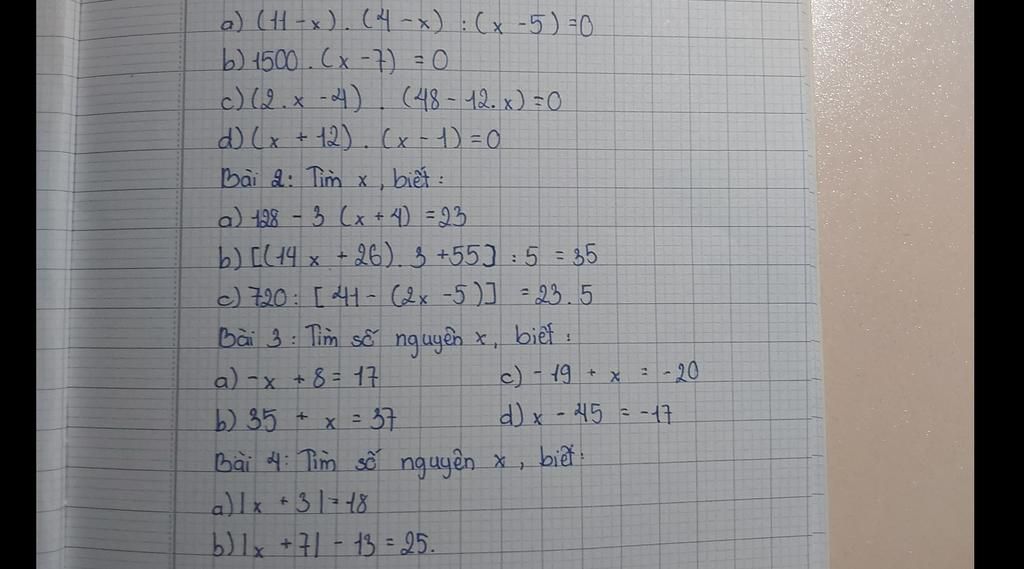 a) (11 - x) . (4 - x) : (x - 5) = 0
b) 1500 . (x - 7) = 0
c) (2 . x - 4) . (48 - 12 . x) = 0
d) (x + 12) . (x - 1) = 0
Bài 2: Tìm x, biết:
a) 128 - 3 (x + 4) = 23
b) [(14x + 26) . 3 + 55] : 5 = 35
c) 720 : [41 - (2x - 5)] = 23 . 5
Bài 3: Tìm số nguyên x, biết:
a) -x + 8 = 17 c) -19 + x = -20
b) 35 + x = 37 d) x - 45 = -17
Bài 4: Tìm số nguyên x, biết:
a) |x + 3| = 18
b) |x + 7| - 13 = 25.